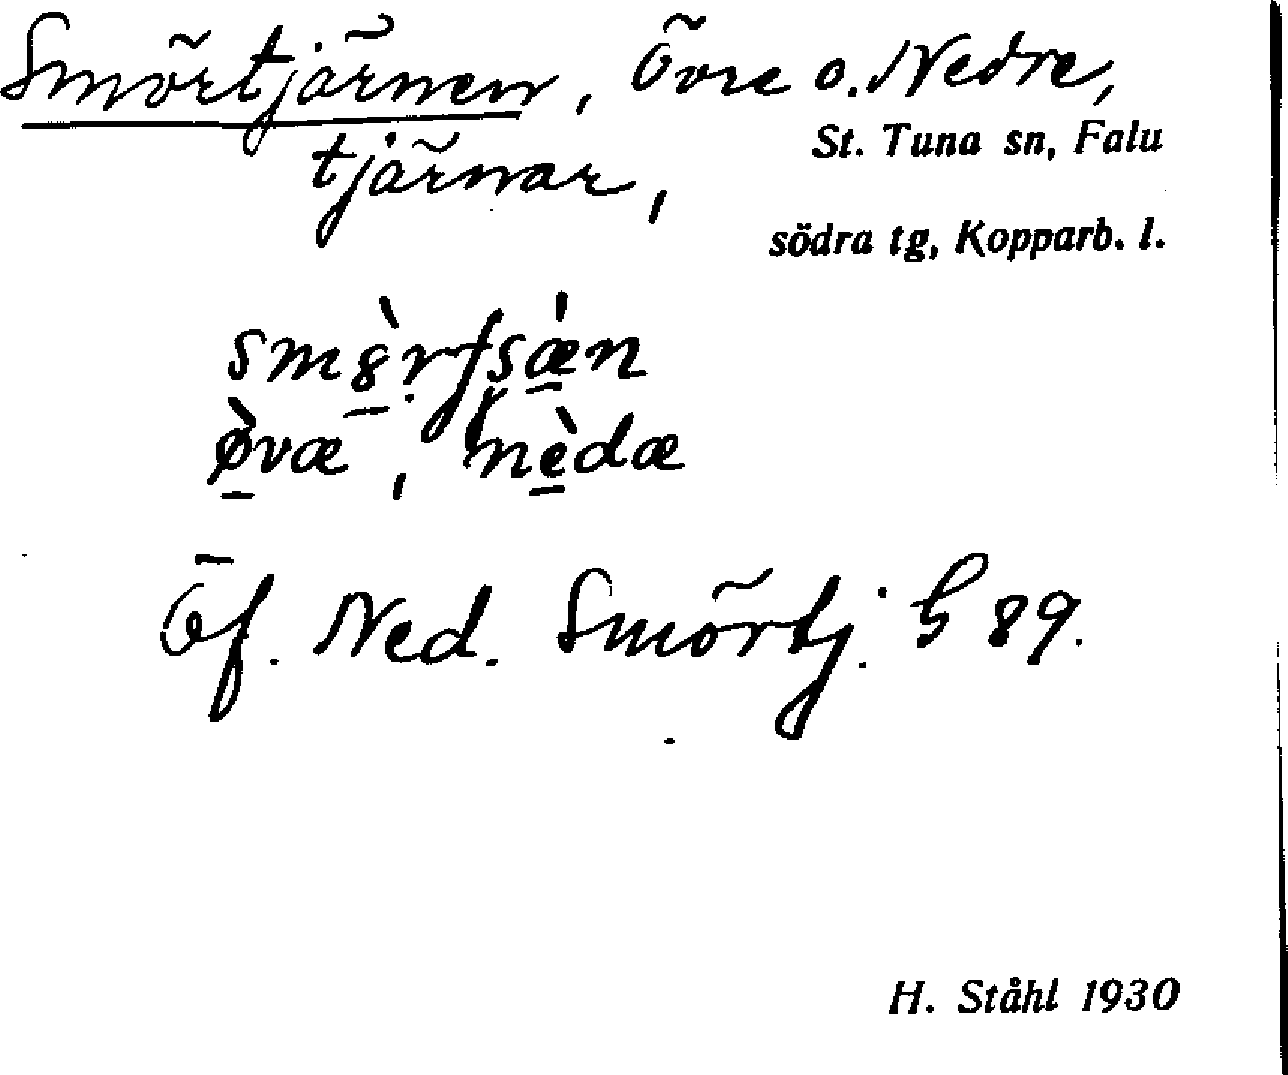 Smörtjärnen, Övre o. Nedre,
St. Tuna sn, Falu
tjärnar,
södra tg, Kopparb. l.
øvæ, nedæ
Öf. Ned. Smörtj. G 89.
H. Ståhl 1930